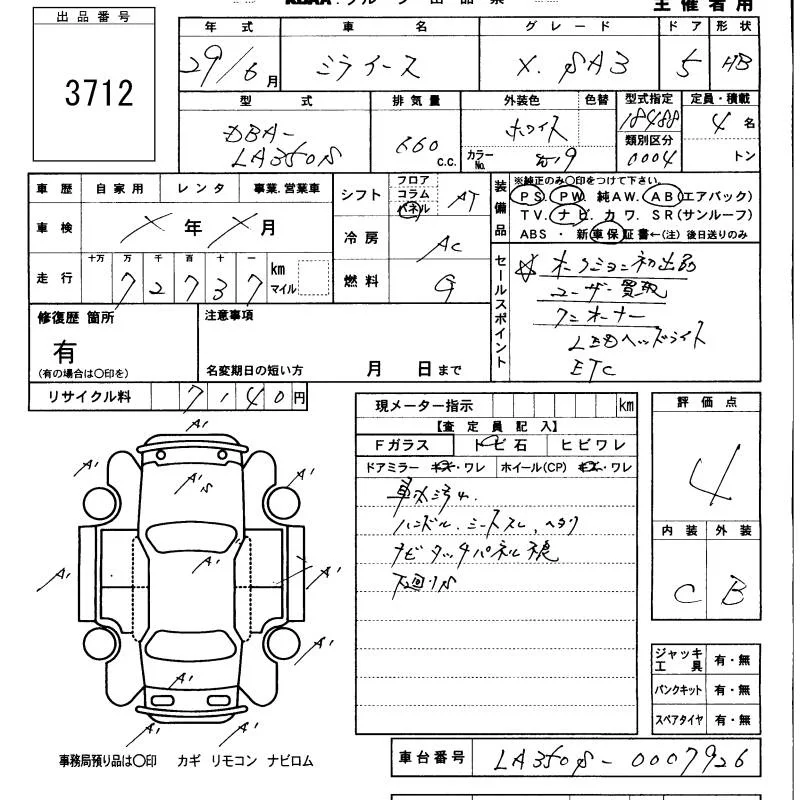 主催者用
出品番号
3712
年式 車名 グレード ドア 形状
29/6月 ミライース X. SAⅢ 5 HB
型式 排気量 外装色 色替 型式指定 定員・積載
DBA-
LA350S 660 c.c. ホワイト カラーNo. W19 18488 4名
類別区分 0004 トン
車歴 自家用 レンタ 事業.営業車
車検 × 年 × 月
走行 十万 万 千 百 十 一 km マイル
72737
シフト フロア コラム パネル AT
冷房 AC
燃料 G
装備品
※純正のみ○印をつけて下さい。
PS. PW. 純AW. AB(エアバック)
TV. ナビ. カワ. SR(サンルーフ)
ABS ・ 新車保証書←(注) 後日送りのみ
セールスポイント
☆オークション初出品
ユーザー買取
ワンオーナー
LEDヘッドライト
ETC
修復歴 箇所
有
(有の場合は○印を)
注意事項
名変期日の短い方 月 日まで
リサイクル料 7140円
現メーター指示 km
【査定員記入】
Fガラス トビ石 ヒビワレ
ドアミラー キズ・ワレ ホイール(CP) キズ・ワレ
車内汚れ.
ハンドル.シートスレ、ヘタリ
ナビタッチパネル
下廻りS
評価点
4
内装 外装
C B
ジャッキ工具 有・無
パンクキット 有・無
スペアタイヤ 有・無
A'
A'
A'S
A'
A'
A'
A'
A'
A'
A'
A'
事務局預り品は○印 カギ リモコン ナビロム
車台番号 LA350S-0007926